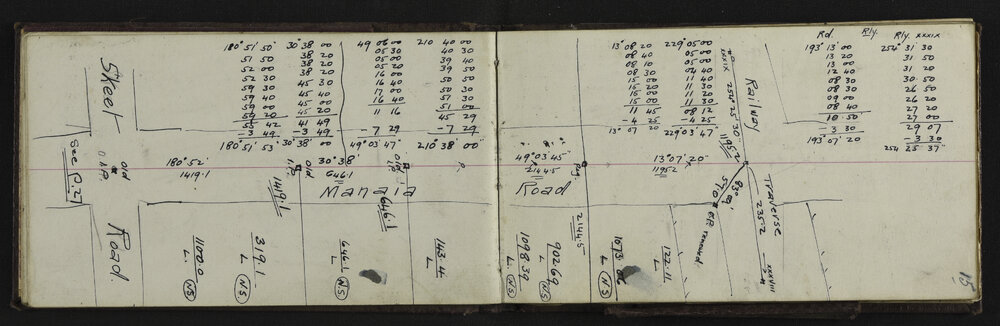 Rd. Rly. Rly xxxix
180° 51' 50" 30° 38 00 49 06 00 210 40 00
51 50 38 20 05 30 40 30
52 00 38 20 05 00 39 40
52 30 38 20 05 20 39 50
59 30 45 30 16 00 50 50
59 40 45 40 16 40 50 30
59 00 45 00 17 00 51 30
59 20 45 20 16 40 51 00
55 42 41 49 11 16 45 29
-3 49 -3 49 -7 29 -7 29
180° 51' 53" 30° 38' 00 49° 03' 47" 210° 38' 00
13° 08 20 229° 05 00
08 40 05 00
08 10 05 00
08 30 04 40
15 00 11 40
15 00 11 30
15 00 11 20
15 00 11 30
11 45 08 12
-4 25 -4 25
13° 07 20 229° 03' 47"
193° 13' 00 254° 31 30
13 20 31 50
13 00 31 20
12 40 31 30
08 30 26 50
09 00 26 20
08 40 27 20
10 50 27 00
-3 30 29 07
193° 07' 20 -3 30
254 25 37"
Skeet
Road
See P.27
old
180° 52'
1419.1
1419.1
old
I.P.
30° 38'
646.1
646.1
old
I.P.
Manaia
Road
49° 03' 45"
2144.5
2144.5
Pg.
13° 07' 20"
1195.2
xxxix
254° 25' 30"
1195.2
Railway
STD
removed
Traverse
235.2
xxxviii
1100.0
L
NS
319.1
L
NS
646.1
L
NS
143.44
L
1098.39
L
NS
902.69
L
NS
L
NS
122.11
L
15